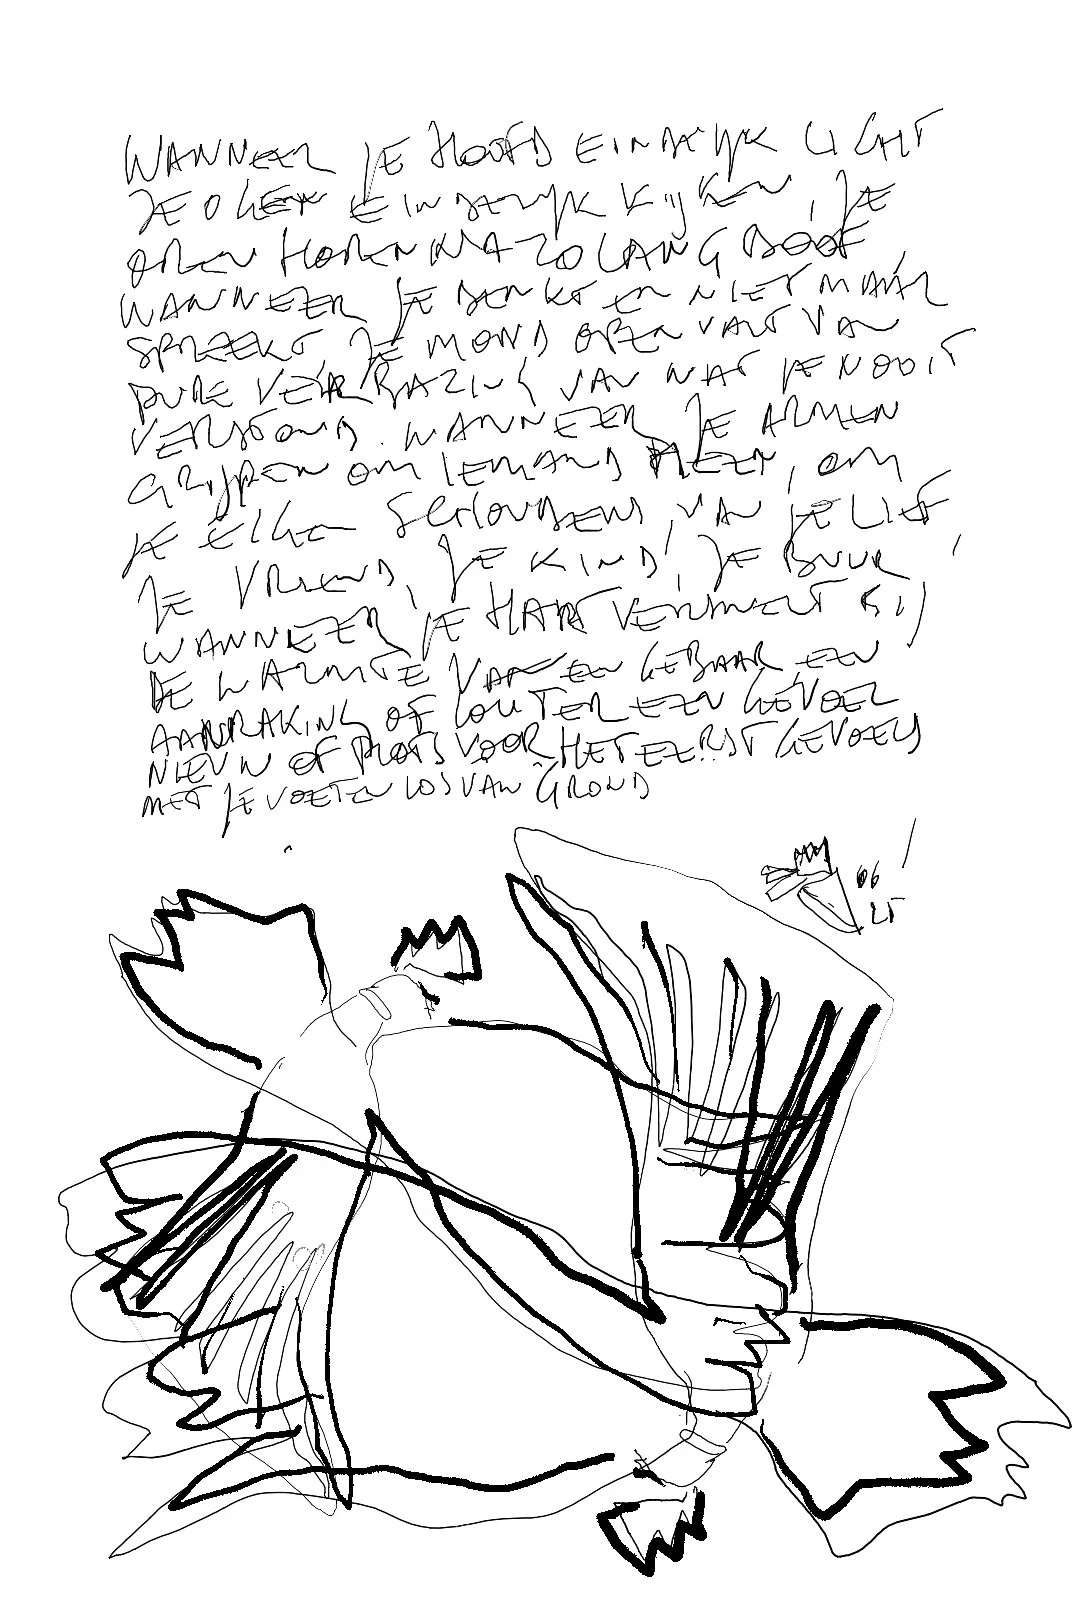 WANNEER JE HOOFD EINDELIJK LICHT
JE OGEN EINDELIJK KIJKEN, JE
OREN HOREN NA ZO LANG DOOF,
WANNEER JE DENKT EN NIET MAAR
SPREEKT, JE MOND OPEN VALT VAN
PURE VERBAZING VAN WAT JE NOOIT
VERSTOND. WANNEER JE ARMEN
GRIJPEN OM IEMAND MEER, OM
JE EIGEN, VAN JE LIEF
JE VRIEND, JE KIND, JE BUUR,
WANNEER JE HART VERWARMT BIJ
DE WARMTE VAN EEN GEBAAR, EEN
AANRAKING OF LOUTER EEN GEVOEL
NIEUW OF PLOTS VOOR HET EERST GEVOELD
MET JE VOETEN LOS VAN GROND
06
25